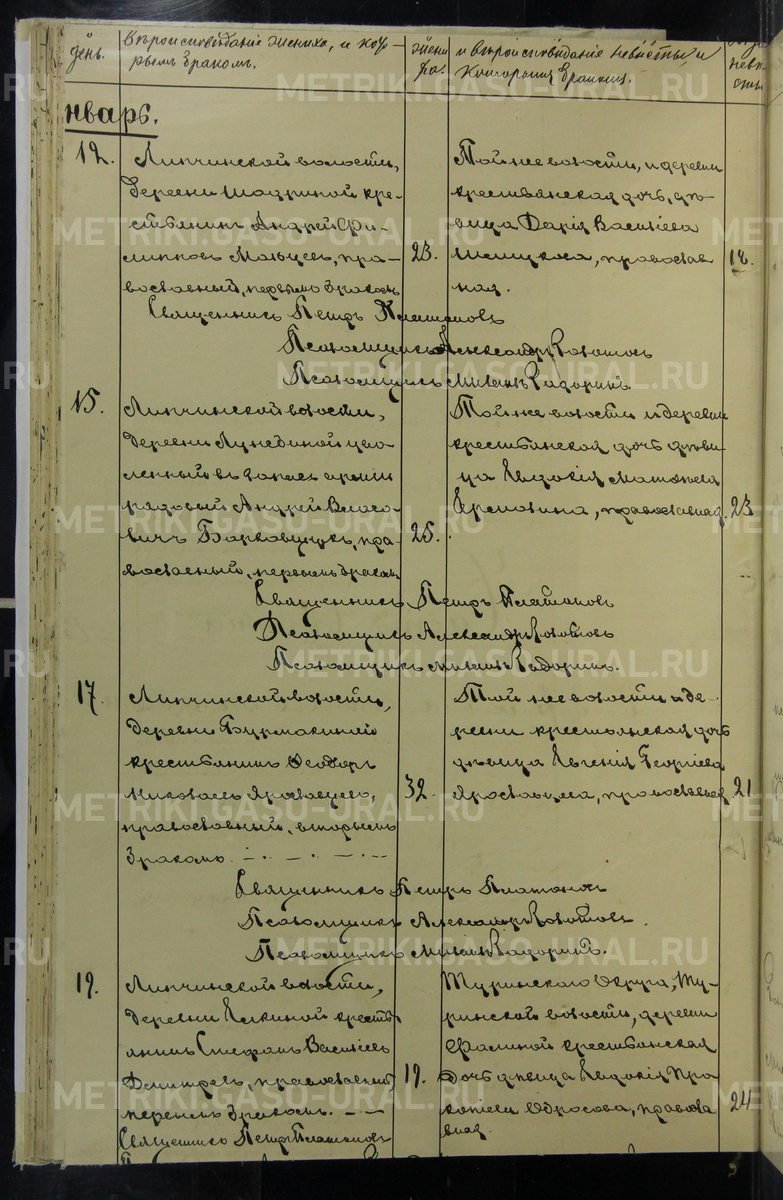 день.
вѣроисповѣданіе жениха, и кото-
рымъ бракомъ.
жени
ха.
и вѣроисповѣданіе невѣсты и
которымъ бракомъ.
невѣ
сты
нварь.
12.
Липчинской волости,
деревни Шадриной кре-
стьянинъ Андрей Фи-
липповъ Мальцевъ, пра-
вославный, первымъ бракомъ
23.
Той же волости, и деревни
крестьянская дочь, дѣ-
вица Дарія Васильева
православ
ная.
18.
Священникъ Петръ Платоновъ
Псаломщикъ Александръ
Псаломщикъ Михаилъ
15.
Липчинской волости,
деревни
ленный въ запасъ арміи
рядовый Андрей Власо-
вичъ пра-
вославный, первымъ бракомъ
25.
Той же волости и деревни
крестьянская дочь дѣви-
ца Евдокія
православная.
23
Священникъ Петръ Платоновъ
Псаломщикъ Александръ
Псаломщикъ Михаилъ
17.
Липчинской волости,
деревни Бурмакиной
крестьянинъ Ѳеодоръ
Николаевъ Ярославцевъ,
православный, вторымъ
бракомъ
32
Той же волости и де-
ревни крестьянская дочь
дѣвица Евгенія Георгіева
Ярославцева, православная
21
Священникъ Петръ Платоновъ
Псаломщикъ Александръ
Псаломщикъ Михаилъ
19.
Липчинской волости,
деревни Елкиной кресть
янинъ Стефанъ Васильевъ
православный
первымъ бракомъ.
19.
Туринскаго Округа, Ту-
ринской волости, деревни
крестьянская
дочь дѣвица Евдокія Про
копіева православ
ная.
24
Священникъ Петръ Платоновъ
METRIKI.GASU-URAL.RU